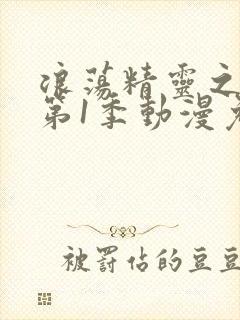 浪蕩精靈之
第1季動漫
被罰佔的豆豆